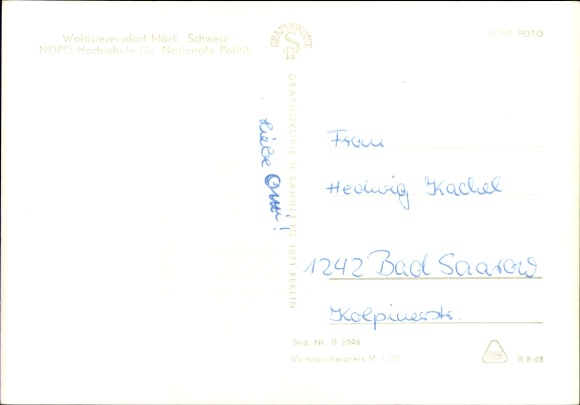 Waldsieversdorf Märk. Schweiz
NDPD-Hochschule für Nationale Politik
ECHT FOTO
GRAPHOKOPIE
Liebe Omi!
Frau
Hedwig Kachel
1242 Bad Saarow
Kolpinerstr.
Best. Nr. B 2096
Verbraucherpreis M -,25
B 8/68